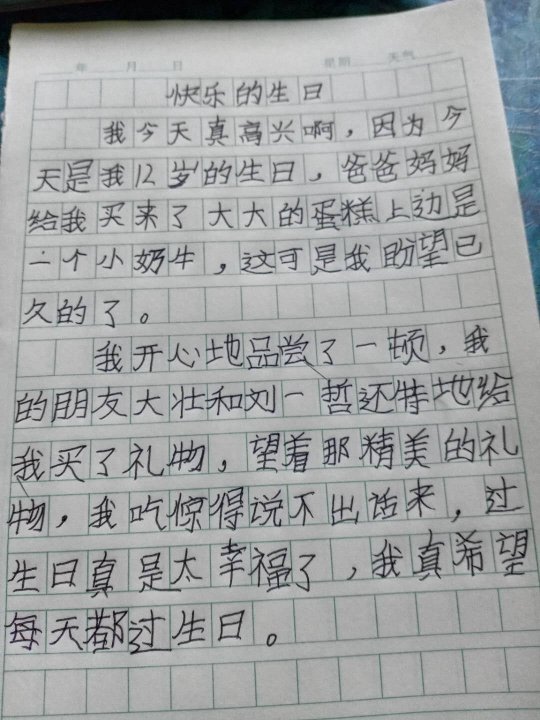 年 月 日 星期 天气
快乐的生日
我今天真高兴啊，因为今
天是我12岁的生日，爸爸妈妈
给我买来了大大的蛋糕上边是
一个小奶牛，这可是我盼望已
久的了。
我开心地品尝了一顿，我
的朋友大壮和刘一哲还特地给
我买了礼物，望着那精美的礼
物，我吃惊得说不出话来，过
生日真是太幸福了，我真希望
每天都过生日。